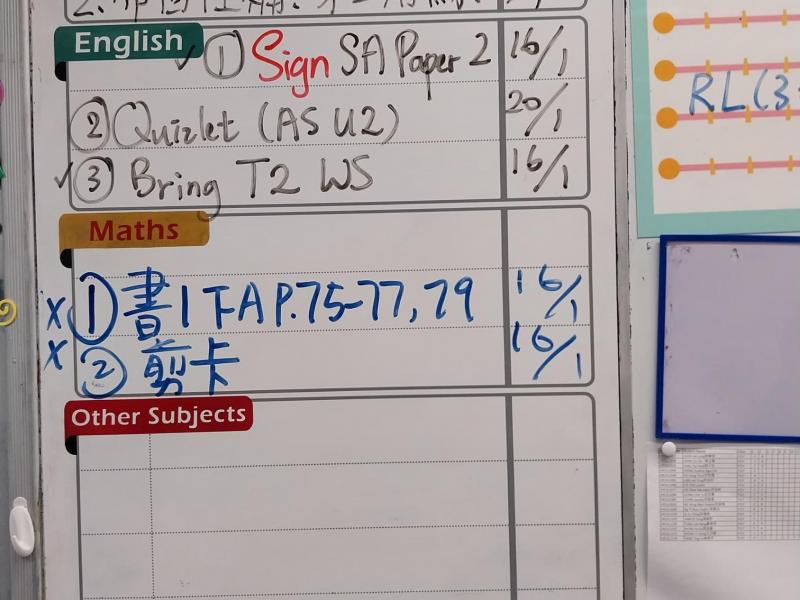 English
✓ ① Sign SA Paper 2 16/1
② Quizlet (AS U2) 20/1
✓ ③ Bring T2 WS 16/1
Maths
x ① 書1下A P.75-77, 79 16/1
x ② 剪卡 16/1
Other Subjects
RL(3